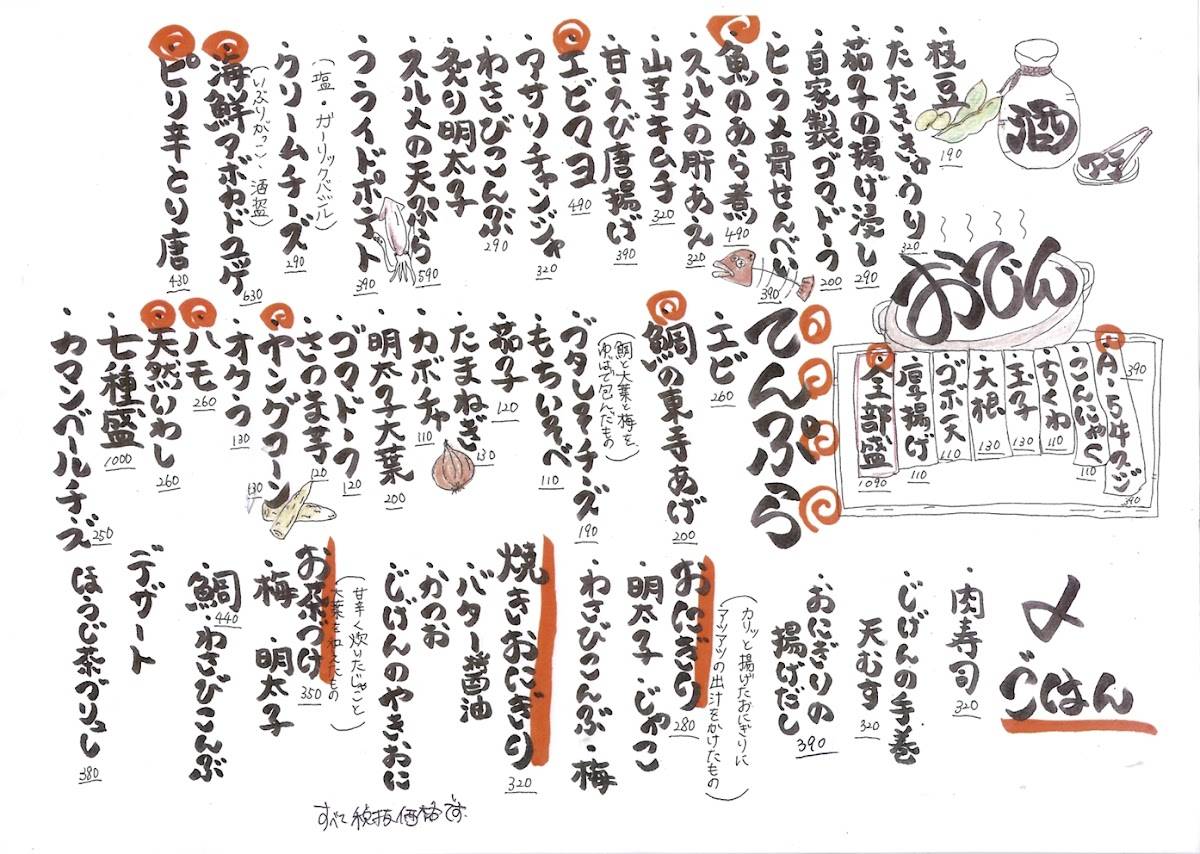 酒
・枝豆 190
・たたききゅうり 320
・茄子の揚げ浸し 290
・自家製ゴマドーフ 200
・ヒラメ骨せんべい 390
・魚のあら煮 490
・スルメの肝あえ 320
・山芋キムチ 320
・甘えび唐揚げ 390
・エビマヨ 490
・アサリチャンジャ 320
・わさびこんぶ 290
・炙り明太子
・スルメの天ぷら 590
・フライドポテト 390
(塩・ガーリックバジル)
・クリームチーズ 290
(いぶりがっこ・酒盗)
・海鮮アボカドユッケ 630
・ピリ辛とり唐 430
おでん
・A-5牛スジ 390
390
・こんにゃく 110
・ちくわ 110
・玉子 130
・大根 130
・ゴボ天 110
・厚揚げ 110
・全部盛 1090
てんぷら
・エビ 260
・鯛の東寺あげ 200
(鯛と大葉と梅を、
ゆばで包んだもの)
・ブタしそチーズ 190
・もちいそべ 110
・茄子 120
・たまねぎ 130
・カボチャ 110
・明太子大葉 200
・ゴマドーフ 120
・さつま芋 120
・ヤングコーン 130
・オクラ 130
・ハモ 260
・天然いわし 260
・七種盛 1000
・カマンベールチーズ 250
〆ごはん
・肉寿司 320
・じげんの手巻
天むす 320
・おにぎりの
揚げだし 390
(カリッと揚げたおにぎりに
アツアツの出汁をかけたもの)
・おにぎり 280
明太子・じゃこ
・わさびこんぶ・梅
・焼きおにぎり 320
バター醤油
・かつお
・じげんのやきおに
(甘辛く炊いたじゃこと
大葉を和えたもの)
・お茶づけ 350
・梅・明太子
・鯛・わさびこんぶ
440
デザート
・ほうじ茶ブリュレ 380
すべて税抜価格です。